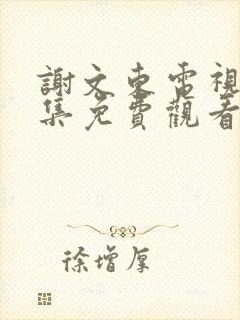 謝文東電視
集免費觀看
徐增厚